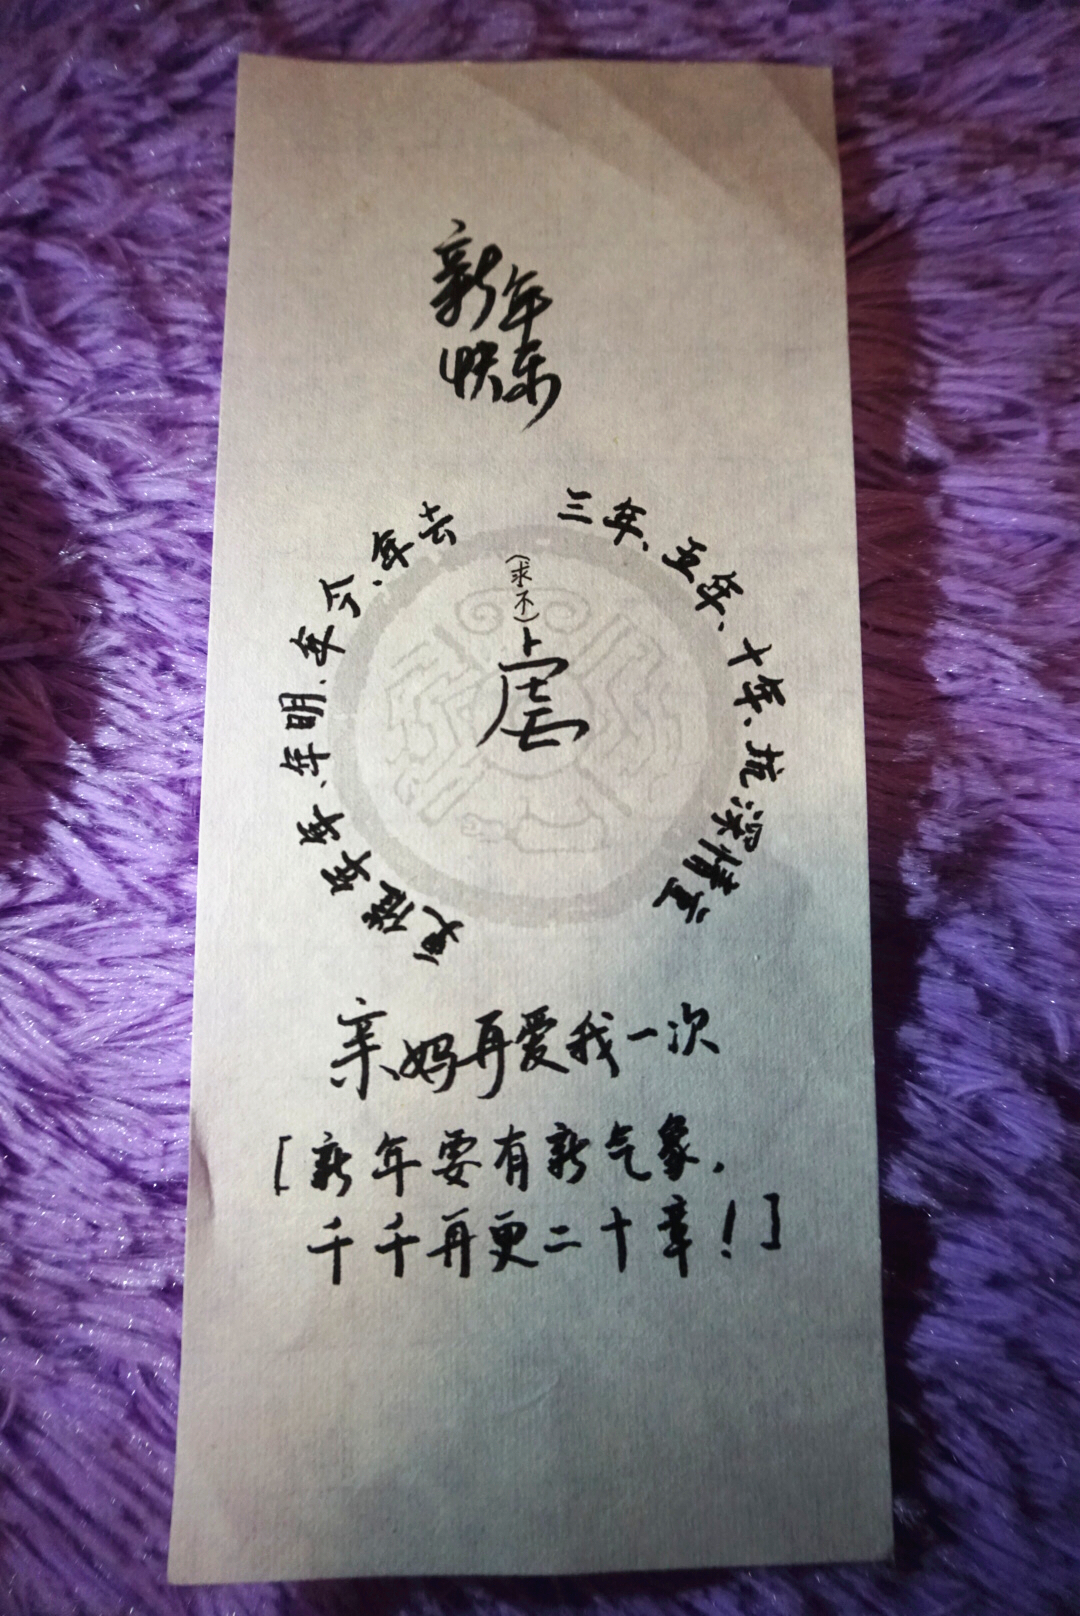 新年
快乐
去年、今年、明年、年年催更
三年、五年、十年、深情
(求不)
虐
亲妈再爱我一次
[新年要有新气象,
千千再更二十章!]